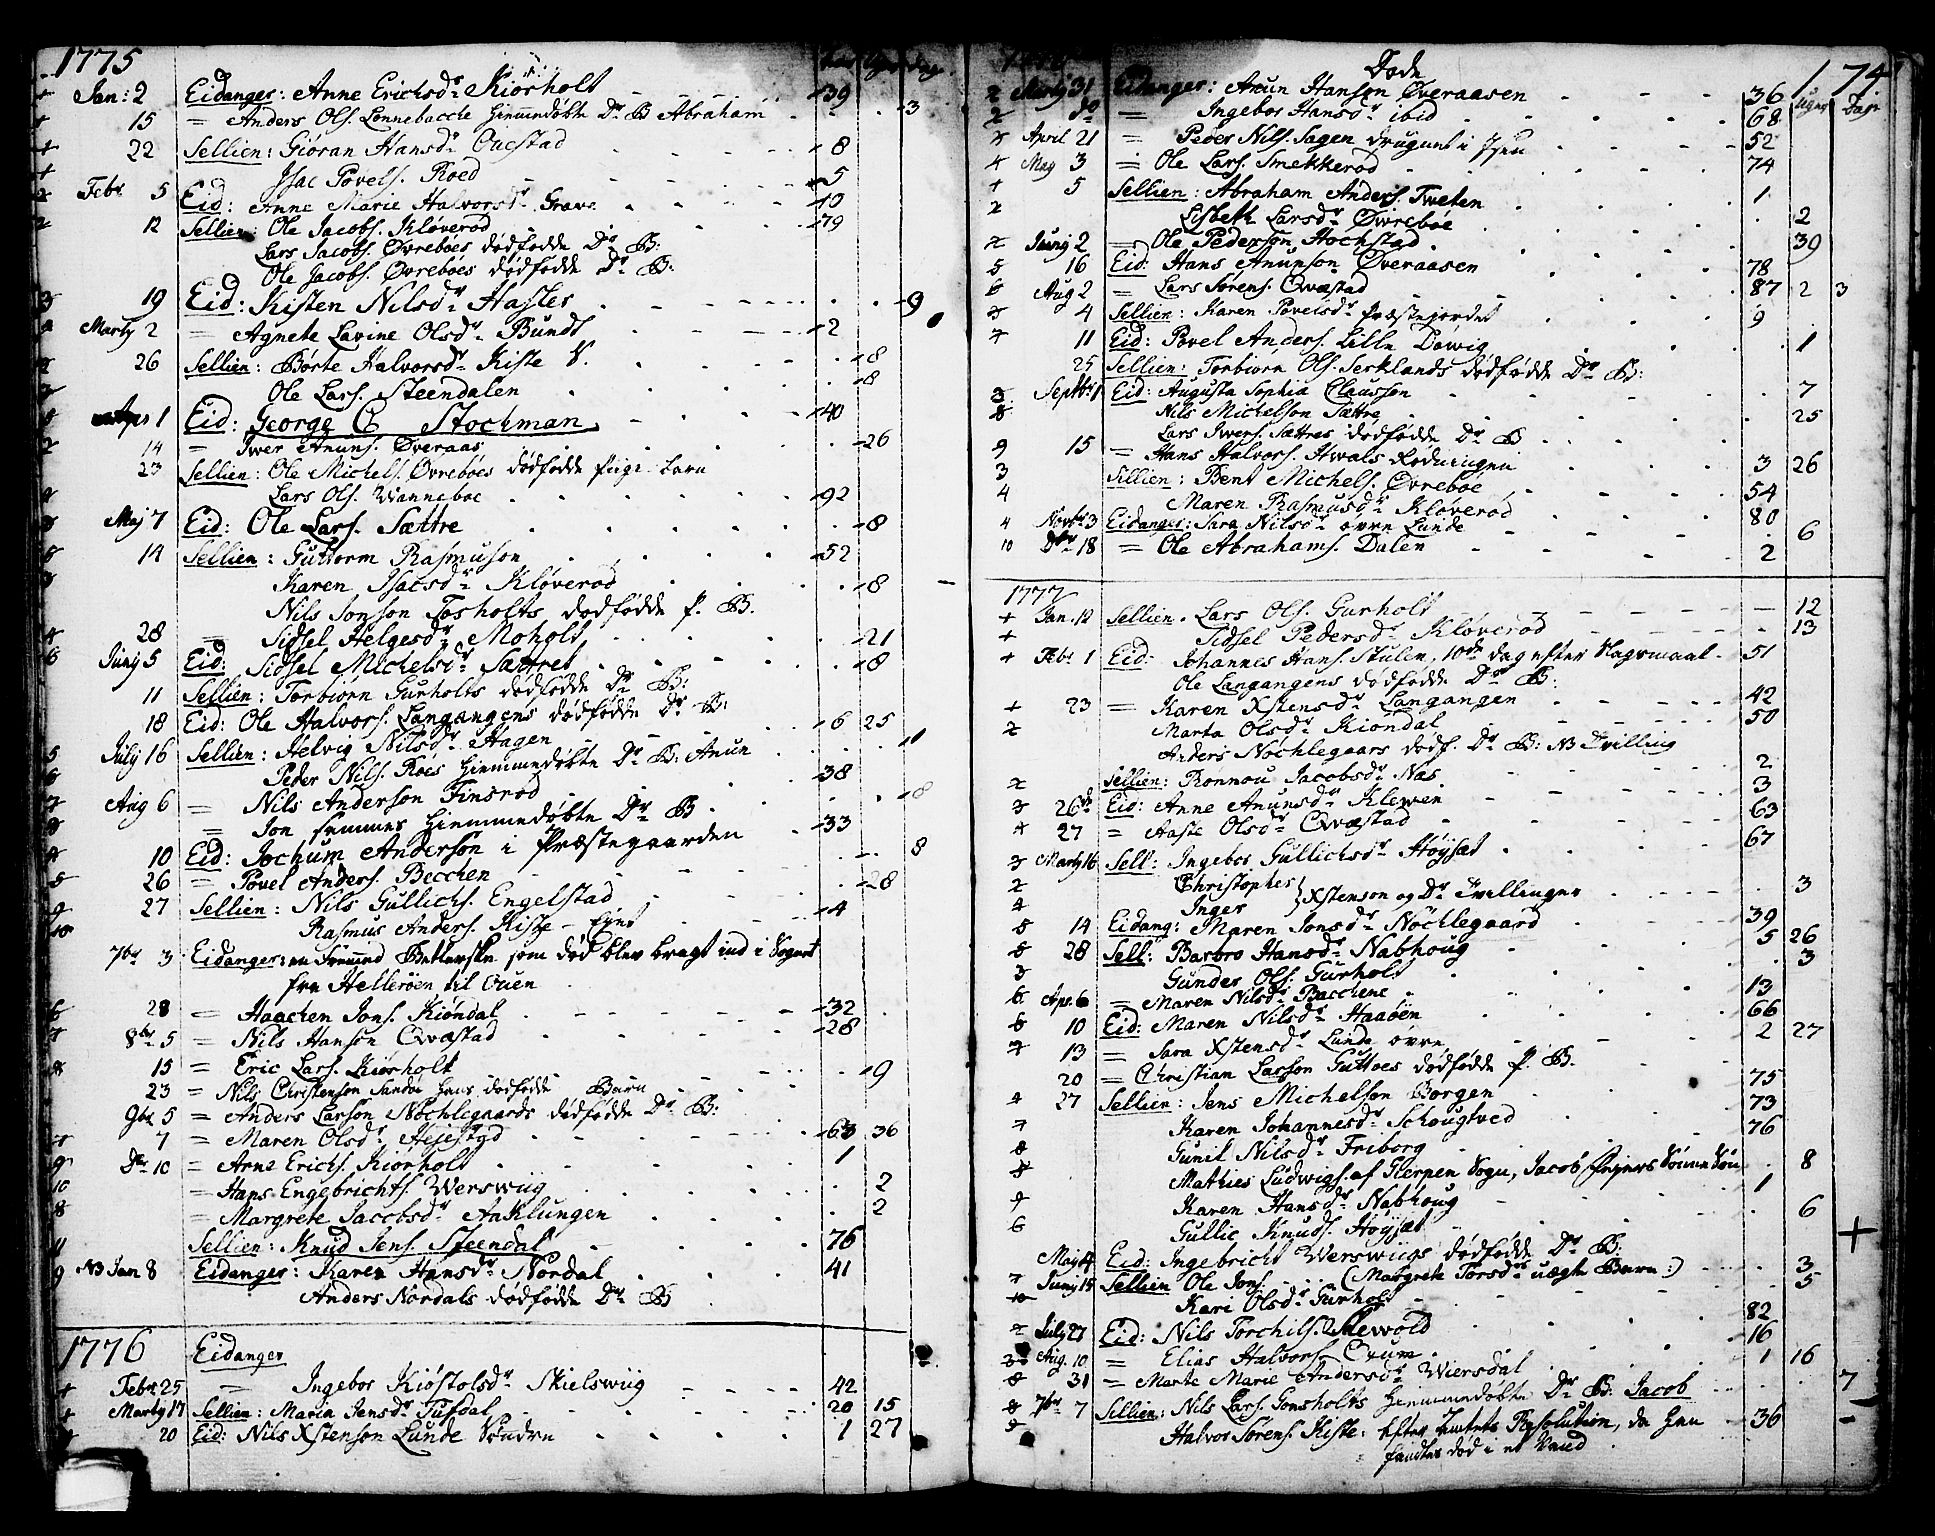 1775
Jan: 2 Eidanger: Anne Erichsdr Kiørholt 39
15 = Anders Ols. Lønnebacche hiemmedøbte Dr B Abraham 3
22 Sellien: Giøran Hansdr 8
Isac Povels. Roed 5
Febr 5 Eid: Anne Marie Halvorsdr Grava
12 Sellien: Ole Jacobs. Kløverød 79
Lars Jacobs. Øvrebøes dødfødde Dr B:
Ole Jacobs. Øvrebøes dødfødde Dr B:
19 Eid: Kisten Nilsdr Hasler 9
Martij 2 = Agnete Lavine Olsdr Bundt 2
26 Sellien: Børte Halvorsdr Kiste V. 8
Ole Lars. Steendalen 8
Apr 1 Eid: George C Stochman 40
14 = Iver Anuns. Øveraas 26
23 Sellien: Ole Michels. Øvrebøes dødfødde Piige barn
Lars Ols. Wanneboe 92
Maj 7 Eid: Ole Lars. Sættre 8
14 Sellien: Guttorm Rasmuson 52
Karen Isacsdr Kløverød 8
Nils Jonson Tosholts dødfødde P. B.
28 = Sidsel Helgesdr Moholt 21
Junij 5 Eid: Sidsel Michelsdr Sættret 8
11 Sellien: Torbiørn Gurholts dødfødde Dr B:
18 Eid: Ole Halvors. Langangens dødfødde Dr B:
July 16 Sellien: Helvig Nilsdr Hagen 6 25
Peder Nils. Roes hiemmedøbte Dr B: Anun 11
Aug 6 = Nils Anderson Finsrød 38
= Jon hiemmedøbte Dr B 8
10 Eid: Jochum Anderson i Præstegaarden 33
26 = Povel Anders. Becchen 8
27 Sellien: Nils Gullichs. Engelstad 28
Rasmus Anders. Kiste 4
7br 3 Eidanger: en fremmed Betlerske som død blev bragt ind i Sognet
fra Hellerøen til
28 = Haachen Jons. Kiøndal 32
8br 5 = Nils Hanson Qvæstad 28
15 = Eric Lars. Kiørholt 9
23 = Nils Christenson Sandøe hans dødfødde Barn
9br 5 = Anders Larson Nøchlegaards dødfødde Dr B:
7 = Maren Olsdr 63 36
Dr 10 = Arne Erichs. Kiørholt 1
= Hans Engebrichts. Werswiig 2
= Margrete Jacobsdr Aaklungen 2
Sellien: Knud Jens. Steendal 76
NB Jan 8 Eidanger: Karen Hansdr Nordal 41
Anders Nordals dødfødde Dr B
1776 Eidanger
Febr 25 = Ingebor Kiøstolsdr Skielswiig 42
Martij 17 Sellien: Maria Jensdr Tufdal 20 15
20 Eid: Nils Xstenson Lunde Søndre 1 27
Døde 174
Uger Dage
Martij 31 Eidanger: Anun Hanson Øveraasen 36
do = Ingebor Hansdr ibid 68
April 21 = Peder Nils. Sagen 52
Maj 3 = Ole Lars. Smekkerød 74
5 Sellien: Abraham Anders. Tweten 1
Lisbeth Larsdr Øvrebøe 2
Junij 2 = Ole Pederson Hochstad 39
16 Eid: Hans Anunson Øveraasen 78
Aug 2 = Lars Sørens. Qvæstad 87 2 3
4 Sellien: Karen Povelsdr Præstejordet 9
11 Eid: Povel Anders. Lille Døwig 1
25 Sellien: Torbiørn Ols. Serklands dødfødde Dr B:
Septbr 1 Eid: Augusta Sophia Clausson 7
Nils Michelson Sættre 25
Lars Iwers. Sættres dødfødde Dr B
15 = Hans Halvors. Hwals 3 26
Sellien: Bent Michels. Øvreboe 54
Maren Rasmusdr Kløverød 80
Novbr 3 Eidanger: Sara Nilsdr øvre Lunde 6
Dbr 18 = Ole Abrahams. Dalen 2
1777
Jan. 12 Sellien. Lars Ols. Gurholt 12
Sidsel Pedersdr Kløverød 13
Febr 1 Eid: Johannes Hans. Stulen, 10de dag efter Slagsmaal 51
Ole Langangens dødfødde Dr B:
23 = Karen Xstensdr Langangen 42
Marta Olsdr Kiøndal 50
Anders Nøchlegaars dødf. Dr B: NB Tvilling
Sellien: Ronnou Jacobsdr Næs 2
26de Eid: Anne Anunsdr Klewen 3
27 = Aaste Olsdr Qvæstad 63
Martij 16 Sell: Ingebor Gullichsdr Høysæt 67
Christopher } Xstenson og Dr Tvillinger 3
Inger
14 Eidang: Maren Jonsdr Nøchlegaard 39
28 Sell: Barbro Hansdr Nabhoug 5 26
Gunder Ols: Gurholt 3
Apr. 6 = Maren Nilsdr Bacchene 13
10 Eid: Maren Nilsdr Haaøen 66
13 = Sara Xstensdr Lunde øvre 2 27
20 = Christian Larson Guttoes dødfødde P. B.
27 Sellien: Jens Michelson Borgen 75
Karen Johannesdr Schougtved 73
Gunil Nilsdr Friborg 76
Mathies Ludwigs. af Gierpen Sogn, Jacob Søn 8
Karen Hansdr Nabhoug 1
Gullic Knuds. Høysæt 6
Maj 14 Eid: Ingebricht Werswiigs dødfødde Dr B:
Junij 15 Sellien Ole Jons. (Margrete Torsdrs uægte Barn:) 3
Kari Olsdr Gurholt 5
July 27 Eid: Nils Torchils. Skewold 82
Aug. 10 = Elias Halvors. 16
31 = Marte Marie Andersdr Wiersdal 1 16
7br 7 Sellien: Nils Lars. Gonsholts hiemmedøbte Dr B: Jacob 7
Halvor Sørens. Kiste: efter Amtets Resolution, da han 36
fandtes død i et Vand